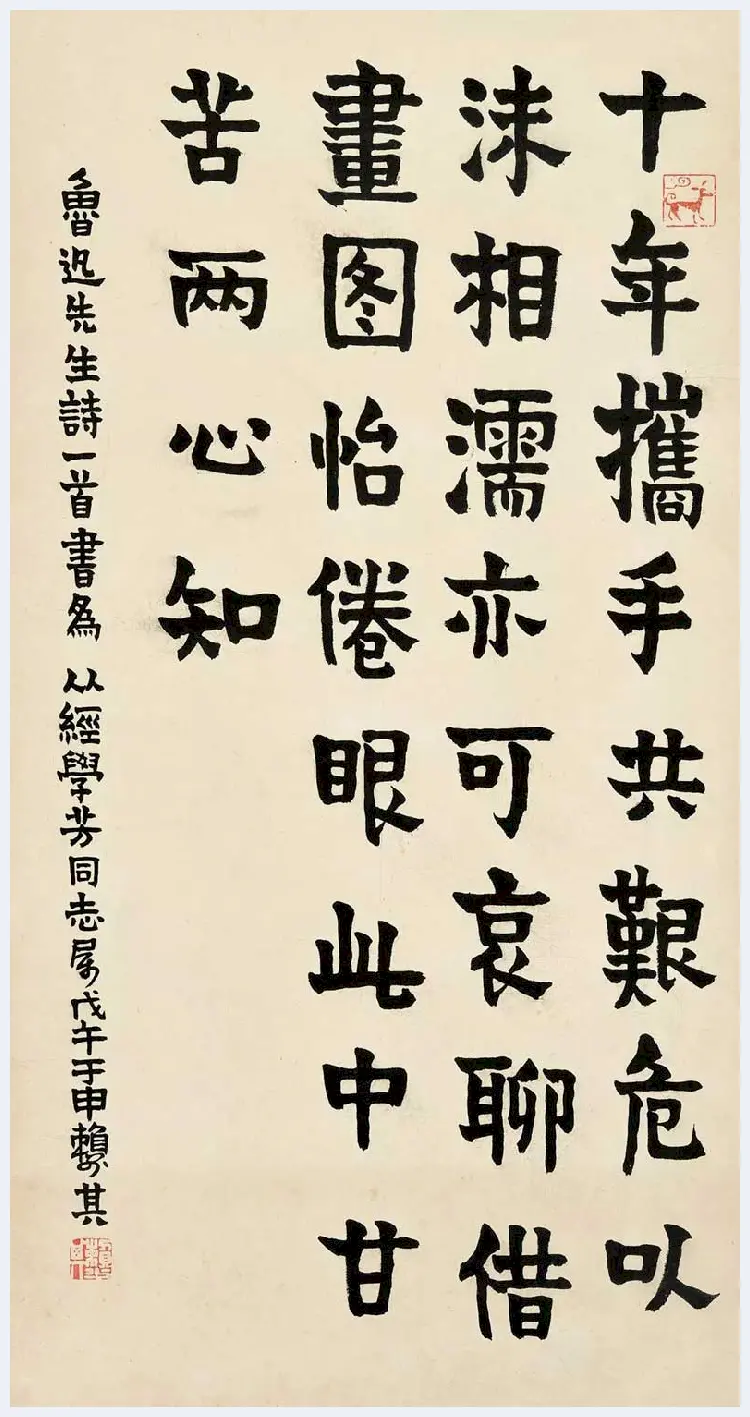 十年攜手共艱危以
沫相濡亦可哀聊借
畫图怡倦眼此中甘
苦两心知
魯迅先生詩一首書為 从經學芳同志属戊午于申賴少其